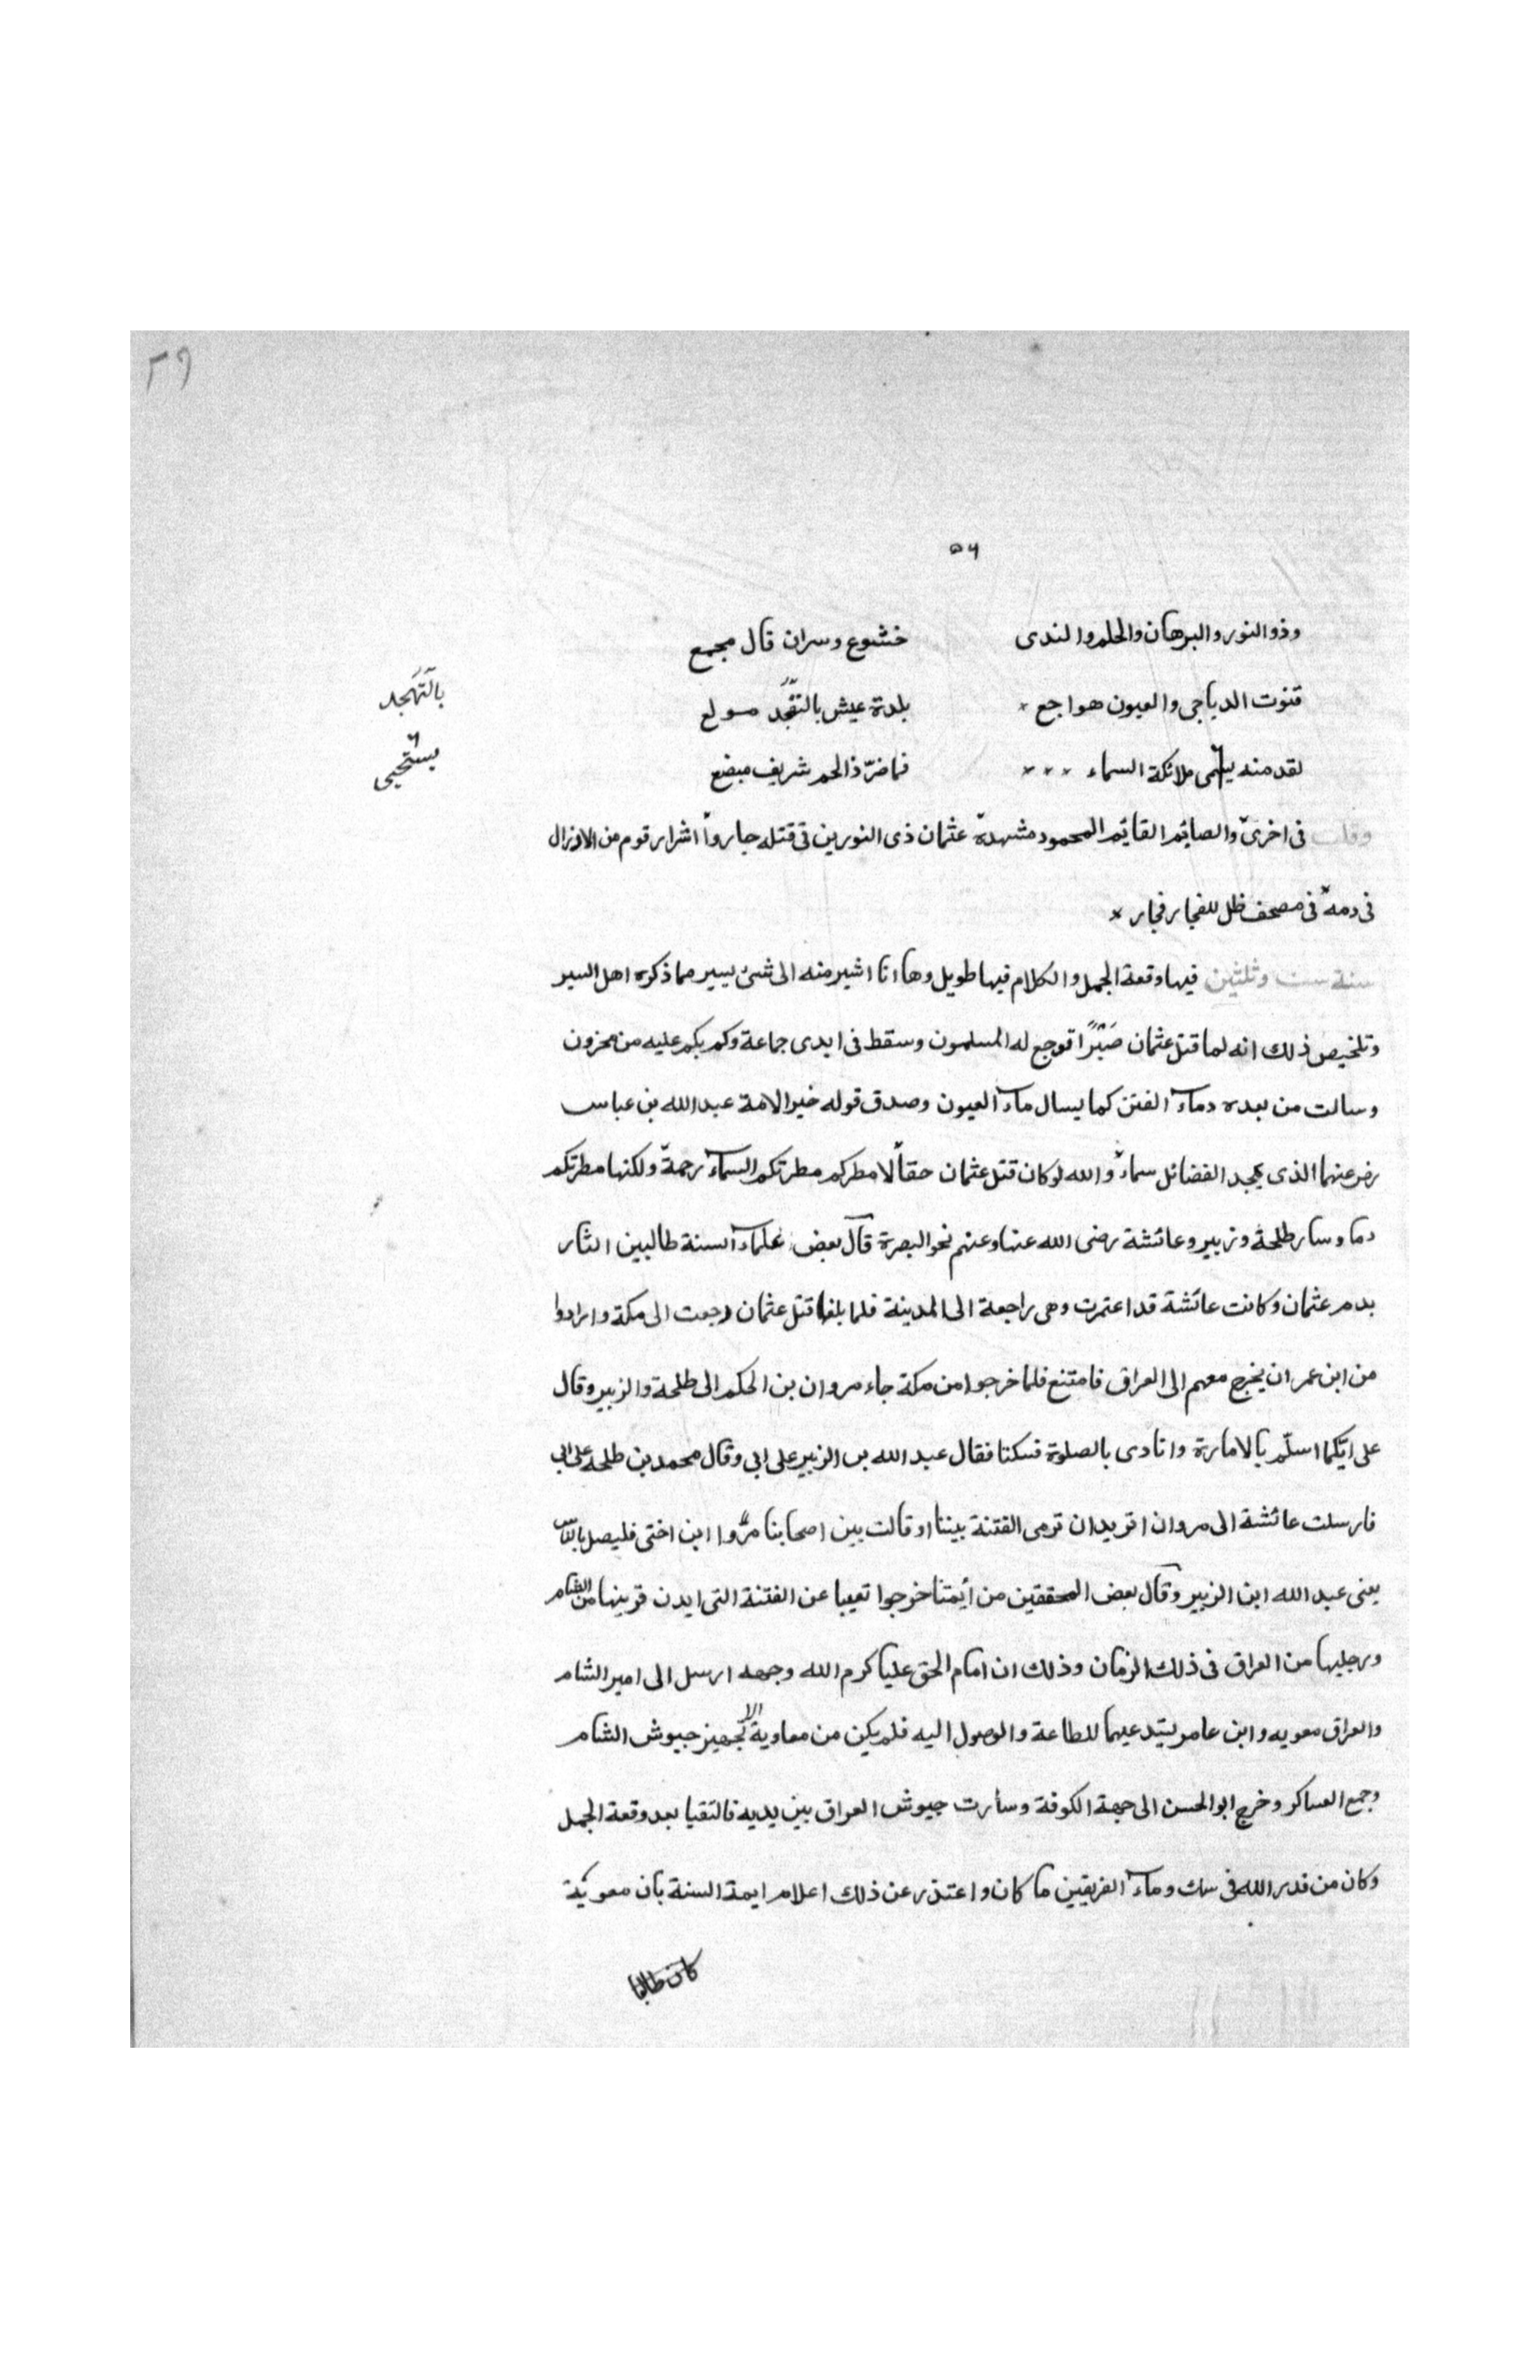 ٢٩
٥٦
وذو النور والبرهان والحلم والندى خشوع وسران قال مجمع
قنوت الدياجى والعيون هواجع بلدة عيش بالتهجد مولع
بالتهجد
لقد منه يستحى ملائكة السماء فما ضرّ ذا لحم شريف مبضع
يستحيى
وقلت فى اخرى والصايم القايم المحمود مشهده عثمان ذى النورين فى قتله جاروا اشرار قوم من الانزال
فى دمه فى مصحف ظل للفجار فجار
سنة ست وثلثين فيها وقعة الجمل والكلام فيها طويل وها انا اشير منه الى شئ يسير مما ذكره اهل السير
وتلخيص ذلك انه لما قتل عثمان صَبْرًا توجع له المسلمون وسقط فى ايدى جماعة وكم بكم عليه من محزون
وسالت من بعده دماء الفتن كما يسال ماء العيون وصدق قوله خير الامة عبد الله بن عباس
رض عنهما الذى بمجد الفضائل سماء والله لو كان قتل عثمان حقاً لامطركم مطرتكم السماء رحمة ولكنها مطرتكم
دما وسار طلحة وزبير وعائشة رضى الله عنها وعنهم نحو البصرة قال بعض علماء السنة طالبين الثار
بدم عثمان وكانت عائشة قد اعتمرت وهى راجعة الى المدينة فلما بلغها قتل عثمان رجعت الى مكة وارادوا
من ابن عمر ان يخرج معهم الى العراق فامتنع فلما خرجوا من مكة جاء مروان بن الحكم الى طلحة والزبير وقال
على ايّكما اسلّم بالامارة وانادى بالصلوة فسكتا فقال عبد الله بن الزبير على ابى وقال محمد بن طلحه على ابى
فارسلت عائشة الى مروان اتريد ان ترمى الفتنة بيننا او قالت بين اصحابنا مرّوا ابن اختى فليصل بالناس
يعنى عبد الله ابن الزبير وقال بعض المحققين من أيمتنا خرجوا تغيبا عن الفتنة التى ايدن قرينها من الشام
ورجليها من العراق فى ذلك الزمان وذلك ان امام الحق عليا كرم الله وجهه ارسل الى امير الشام
والعراق معويه وابن عامر يستدعيهما للطاعة والوصول اليه فلم يكن من معاوية الا تجهيز جيوش الشام
وجمع العساكر وخرج ابو الحسن الى جهة الكوفة وسأرت جيوش العراق بين يديه فالتقيا بعد وقعة الجمل
وكان من قدر الله فى سك دماء الفريقين ما كان واعتذر عن ذلك اعلام ايمة السنة بان معوية
كان طالبا